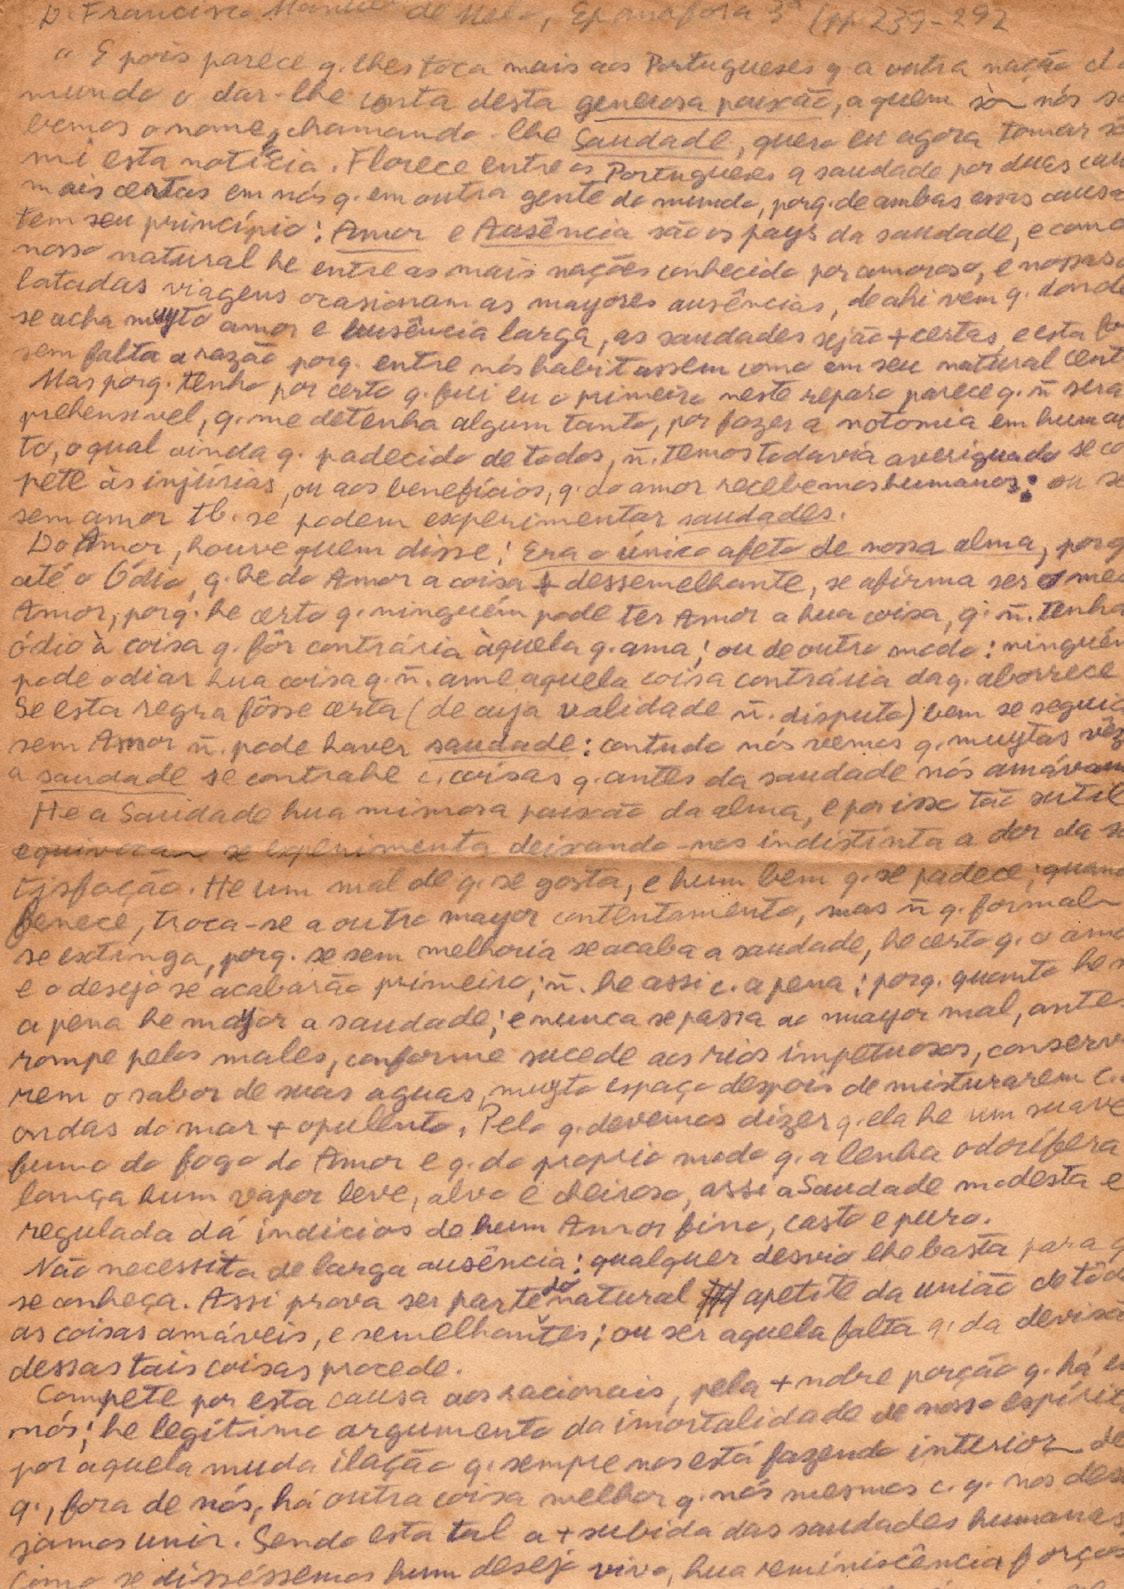 D. Francisco Manuel de Melo, Epanáfora 3ª (pp 239-292
" E pois parece q. lhes toca mais aos Portugueses q a outra nação do
mundo o dar-lhe conta desta generosa paixão, a quem sòm nós sa
bemos o nome, chamando-lhe Saudade, quero eu agora tomar sô
mi esta notícia. Florece entre os Portugueses a saudade por duas cau
mais certas em nós q. em outra gente do mundo, porq. de ambas essas causa
tem seu princípio: Amor e Ausência são os pays da saudade, e como
nosso natural he entre as mais nações conhecido por amoroso, e nossas d
latadas viagens ocasionam as mayores ausências, de ahi vem q. donde
se acha muyto amor e ausência larga, as saudades sejão + certas, e esta fo
sem falta a razão porq. entre nós habitassem como em seu natural cent
Mas porq. tenho por certo q. fui eu o primeiro neste reparo parece q. ñ será
prehensivel, q. me detenha algum tanto, por fazer a notomia em hum af
to, o qual ainda q. padecido de todos, ñ. temos todavia averiguado se co
pete às injúrias, ou aos benefícios, q. do amor recebemos humanos: ou se
sem amor tb. se podem experimentar saudades.
Do Amor, houve quem disse: Era o único afeto de nossa alma, porq
até o Ódio, q. he do Amor a coisa + dessemelhante, se afirma ser o mes
Amor, porq. he certo q. ninguém pode ter Amor a hua coisa, q. ñ. tenha
ódio à coisa q. fôr contrária àquela q. ama; ou de outro modo: ninguém
pode odiar hua coisa q. ñ. ame aquela coisa contrária da q. aborrece
Se esta regra fôsse certa (de cuja validade ñ. disputo) bem se seguia
sem Amor ñ. pode haver saudade: contudo nós vemos q. muytas vêz
a saudade se contrahe c. coisas q. antes da saudade nós amávam
He a Saudade hua mimosa paixão da alma, e por isso tão sutil
equivocam se experimenta deixando-nos indistinta a dor da sa
tisfação. He um mal de q. se gosta, e hum bem q. se padece; quand
fenece, troca-se a outro mayor contentamento, mas ñ q. formalm
se extinga, porq. se sem melhoria se acaba a saudade, he certo q. o amo
e o desejo se acabarão primeiro; ñ. he assi c. a pena; porq. quanto he m
a pena he mayor a saudade; e nunca se passa ao mayor mal, ante
rompe pelos males, conforme sucede aos rios impetuosos, conserv
rem o sabor de suas aguas, muyto espaço despois de misturarem c.
ondas do mar + opulento. Pelo q. devemos dizer q. ela he um suave
fumo do fogo do Amor e q. do proprio modo q. a lenha odorífera
lança hum vapor leve, alvo e cheiroso, assi a Saudade modesta e
regulada dá indicios de hum Amor fino, casto e puro.
Não necessita de larga ausência: qualquer desvio lhe basta para q
se conheça. Assi prova ser parte do natural apetite da união de tôd
as coisas amáveis, e semelhantes; ou ser aquela falta q. da devisã
dessas tais coisas procede.
Compete por esta causa aos racionais, pela + nobre porção q. há e
nós; he legítimo argumento da imortalidade de nosso espírit
por aquela muda ilação q. sempre nos está fazendo interiorm de
q., fora de nós, há outra coisa melhor q. nós mesmos c. q. nos dese
jamos unir. Sendo esta tal a + subida das saudades humanas
como se disséssemos hum desejo vivo, hua reminiscência forços